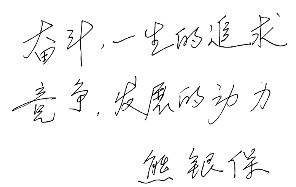 奋斗,一生的追求
竞争,发展的动力
熊银保